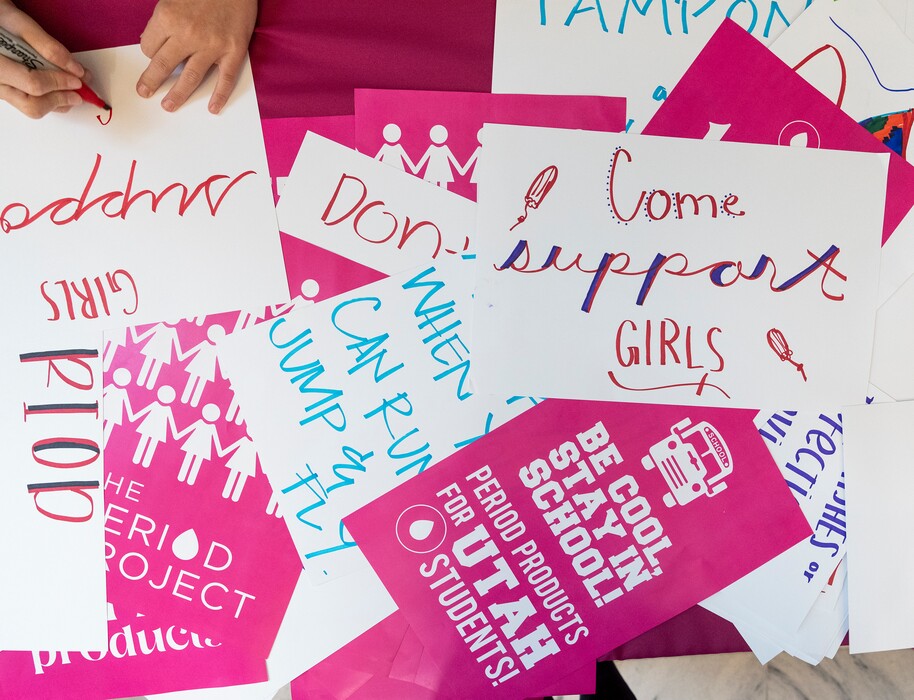 TAMPON
Sharpie
suppo
GIRLS
RIOD
Don
Come
support
GIRLS
WHEN
CAN RUN
JUMP
THE
PERIOD
PROJECT
products
SCHOOL
BE COOL,
STAY IN
SCHOOL!
PERIOD PRODUCTS
FOR UTAH
STUDENTS!
or